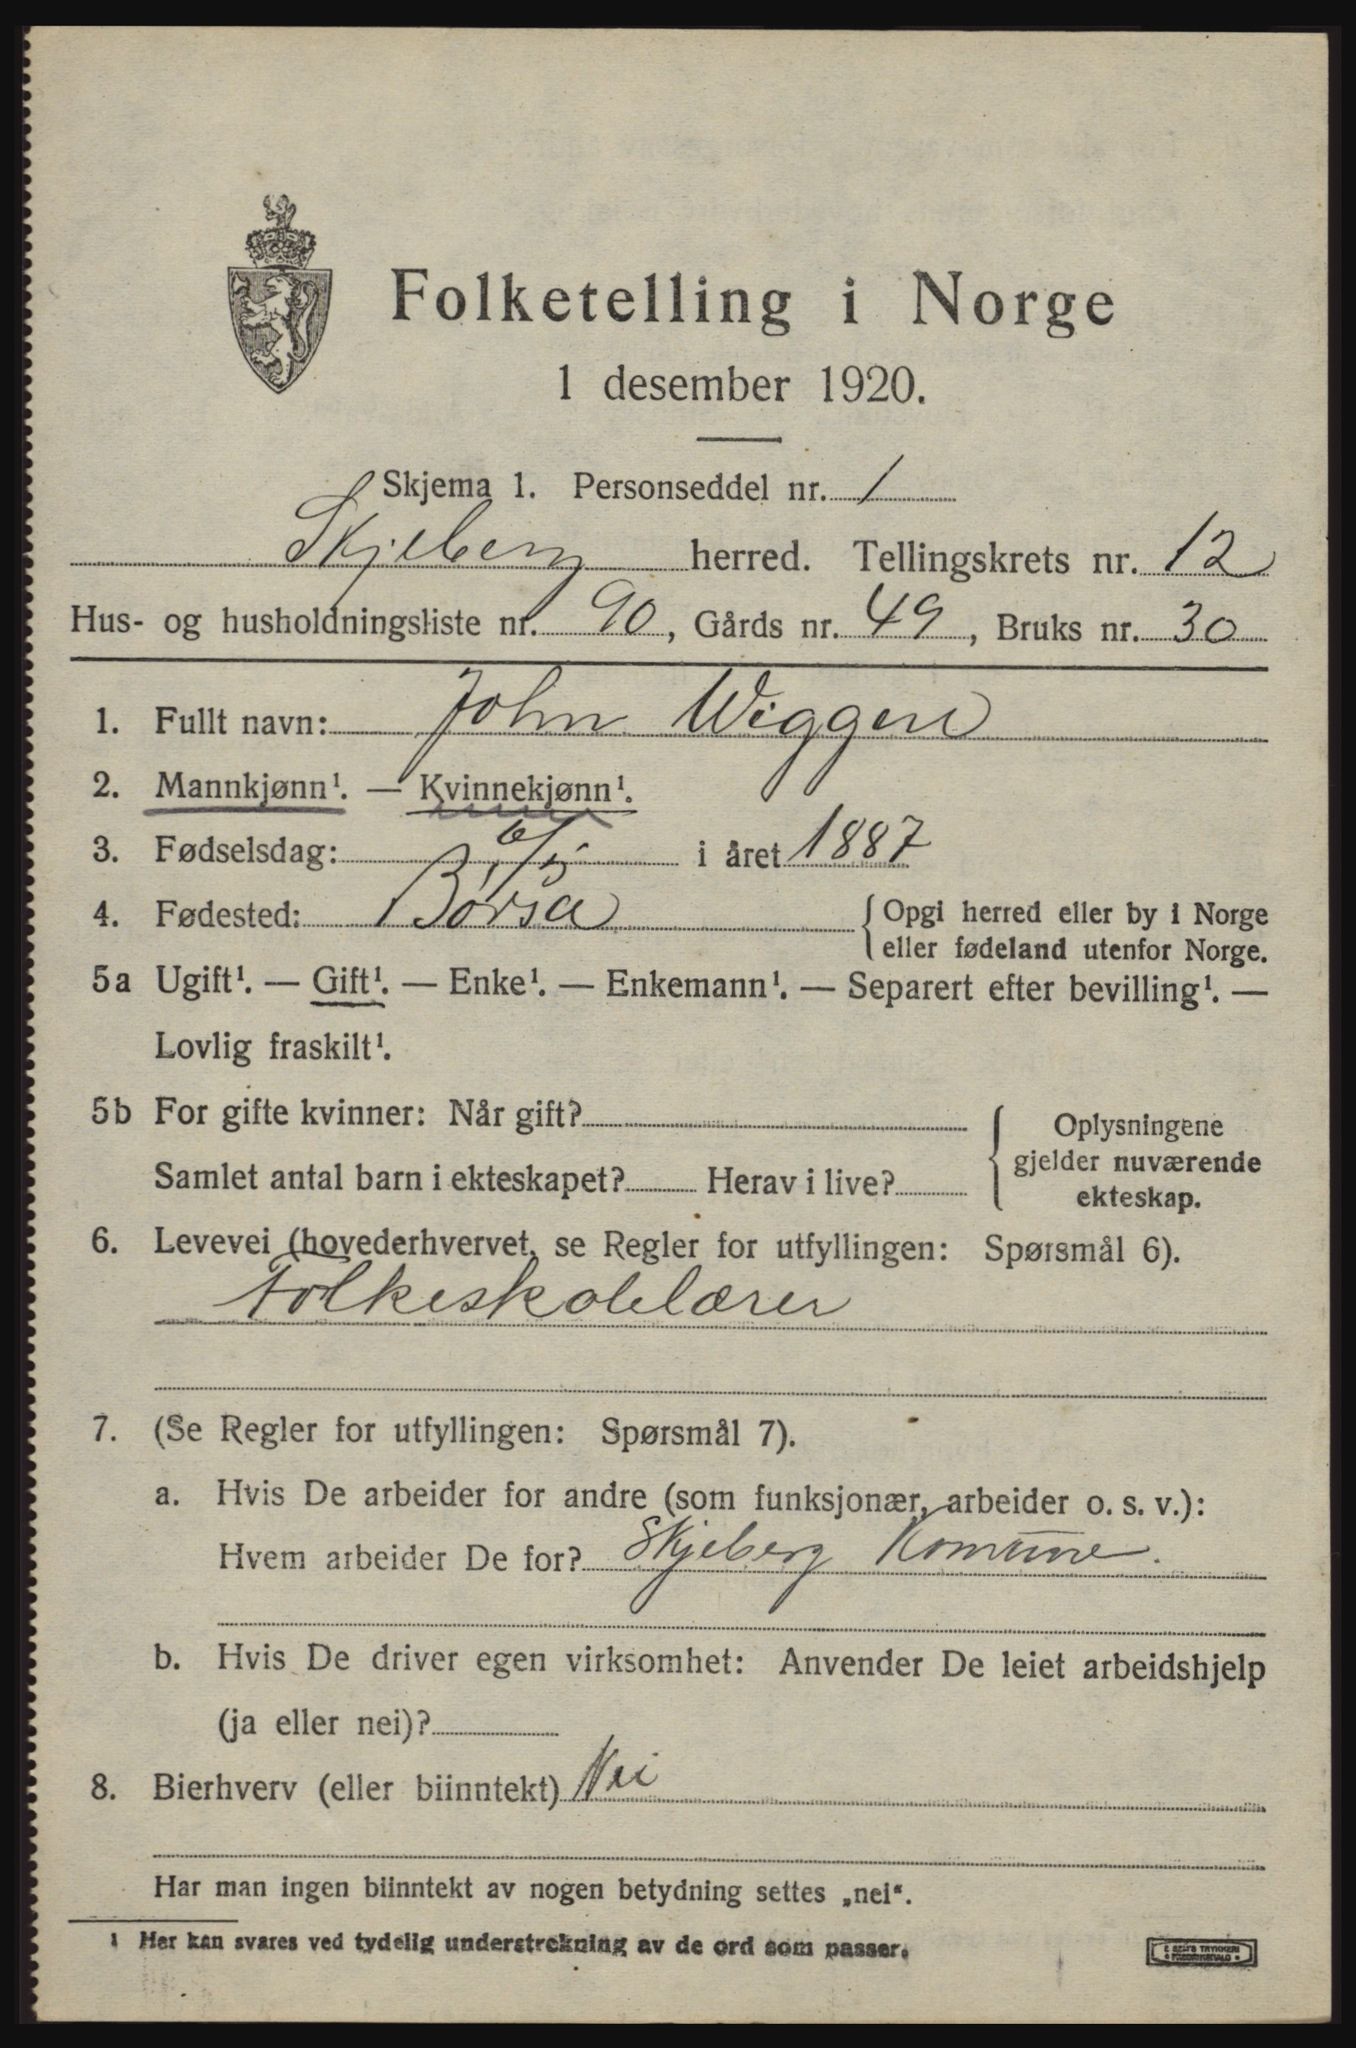 Folketelling i Norge
1 desember 1920.
Skjema 1. Personseddel nr. 1
Skjeberg herred. Tellingskrets nr. 12
Hus- og husholdningsliste nr. 90, Gårds nr. 49, Bruks nr. 30
1. Fullt navn: John Wiggen
2. Mannkjønn¹. — Kvinnekjønn¹.
3. Fødselsdag: 6/5 i året 1887
4. Fødested: Børsa { Opgi herred eller by i Norge
eller fødeland utenfor Norge.
5a Ugift¹. — Gift¹. — Enke¹. — Enkemann¹. — Separert efter bevilling¹. —
Lovlig fraskilt¹.
5b For gifte kvinner: Når gift? { Oplysningene
gjelder nuværende
Samlet antal barn i ekteskapet? Herav i live? ekteskap.
6. Levevei (hovederhvervet, se Regler for utfyllingen: Spørsmål 6).
Folkeskolelærer
7. (Se Regler for utfyllingen: Spørsmål 7).
a. Hvis De arbeider for andre (som funksjonær, arbeider o. s. v.):
Hvem arbeider De for? Skjeberg Komune.
b. Hvis De driver egen virksomhet: Anvender De leiet arbeidshjelp
(ja eller nei)?
8. Bierhverv (eller biinntekt) Nei
Har man ingen biinntekt av nogen betydning settes „nei“.
¹ Her kan svares ved tydelig understrekning av de ord som passer.